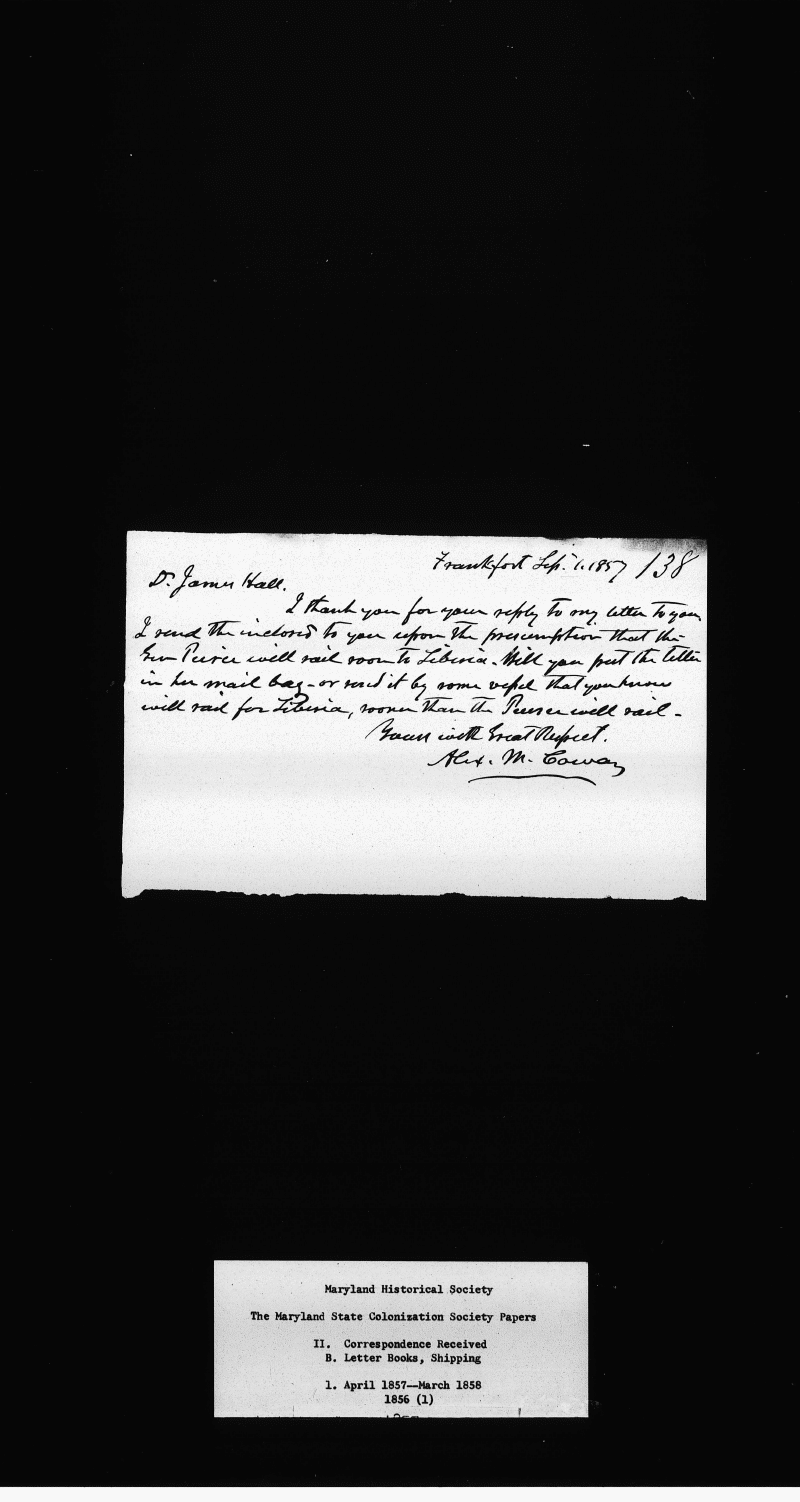 Frankfort Sep. 1. 1857 138
Dr. James Hall.
I thank you for your reply to my letter to you
I send the inclosed to you upon the presumption that the
Gen Peirce will sail soon to Liberia. Will you put the letter
in her mail bag - or send it by some vessel that you know
will sail for Liberia, sooner than the Peirce will sail -
Yours with Great Respect.
Alex. M. Cowan
Maryland Historical Society
The Maryland State Colonization Society Papers
II. Correspondence Received
B. Letter Books, Shipping
1. April 1857--March 1858
1856 (1)